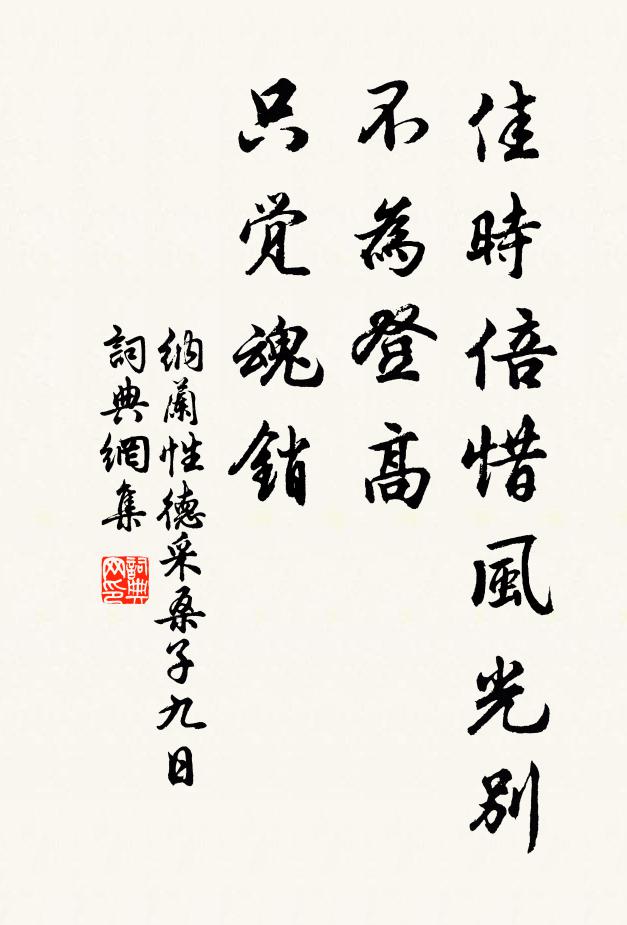 佳時倍惜風光別
不為登高
只觉魂銷
納蘭性德采桑子九日
詞典網集
詞典网印